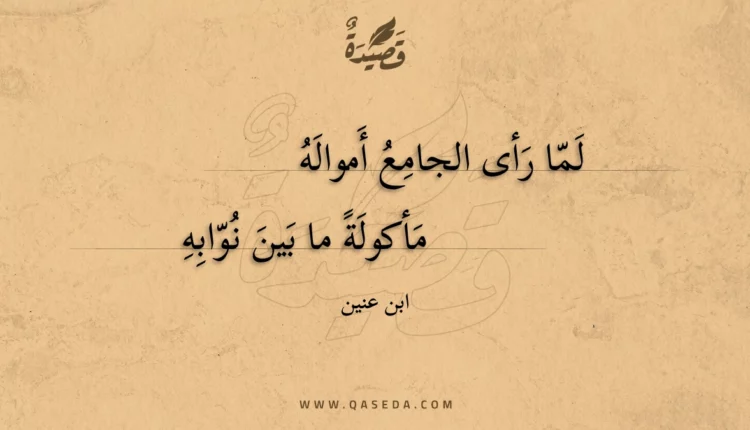 قَصِيدَةٌ
لَمّا رَأى الجامِعُ أَموالَهُ
مَأكولَةً ما بَينَ نُوّابِهِ
ابن عنين
WWW.QASEDA.COM